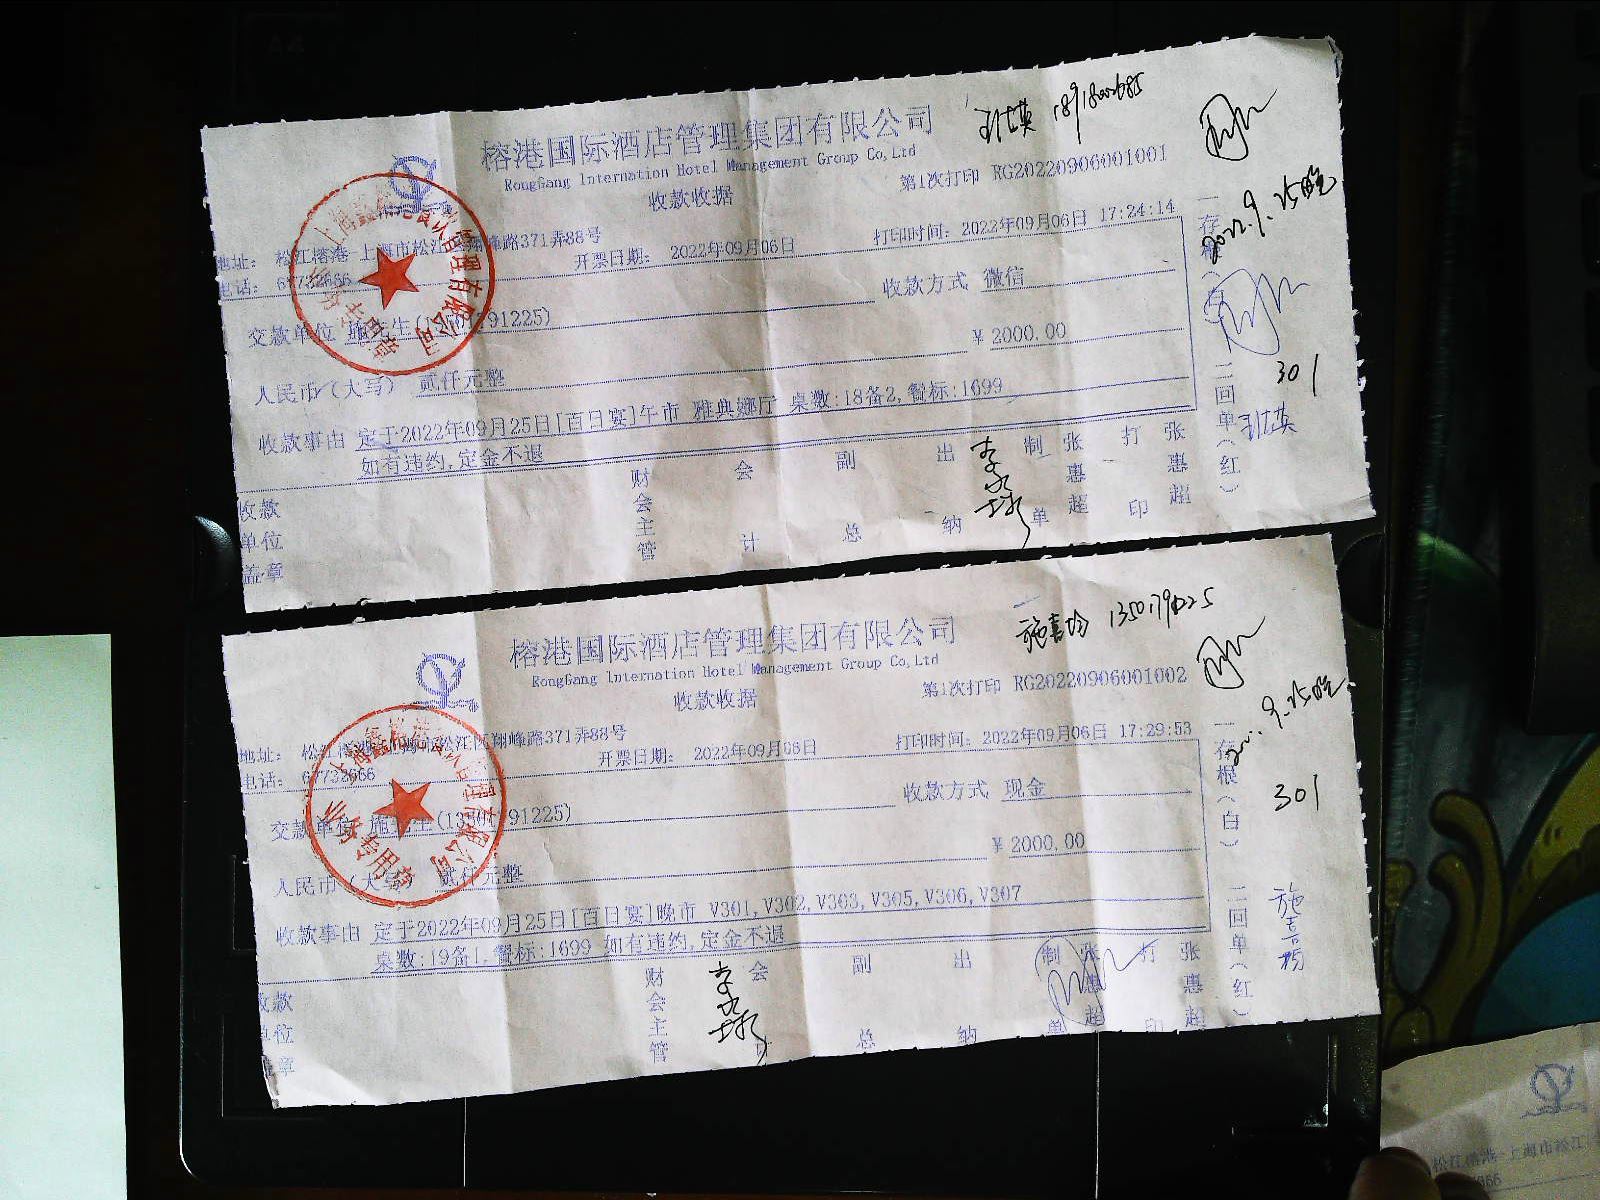 榕港国际酒店管理集团有限公司
RongGang Internation Hotel Management Group Co,Ltd
收款收据
第1次打印 RG20220906001001
地址: 松江榕港-上海市松江 翔峰路371弄88号
电话: 67732666
开票日期: 2022年09月06日
打印时间: 2022年09月06日 17:24:14
交款单位 施先生(135 91225)
收款方式 微信
人民币(大写) 贰仟元整
¥ 2000.00
收款事由 定于2022年09月25日[百日宴]午市 雅典娜厅 桌数:18备2,餐标:1699
如有违约,定金不退
收款单位盖章
财会主管
会计
副总
出纳
制单 张惠超
打印 张惠超
一存根(白)
二回单(红)
2022.9.25晚
301
榕港国际酒店管理集团有限公司
RongGang Internation Hotel Management Group Co,Ltd
收款收据
第1次打印 RG20220906001002
施喜均 13501791225
地址: 松江榕港 上海市松江区翔峰路371弄88号
电话: 67732666
开票日期: 2022年09月06日
打印时间: 2022年09月06日 17:29:53
交款单位 施先生(1350 91225)
收款方式 现金
人民币(大写) 贰仟元整
¥ 2000.00
收款事由 定于2022年09月25日[百日宴]晚市 V301,V302,V303,V305,V306,V307
桌数:19备1,餐标:1699 如有违约,定金不退
收款单位盖章
财会主管
会
副总
出纳
制单 张惠超
打印 张惠超
一存根(白)
二回单(红)
9.25晚
301
业务专用章